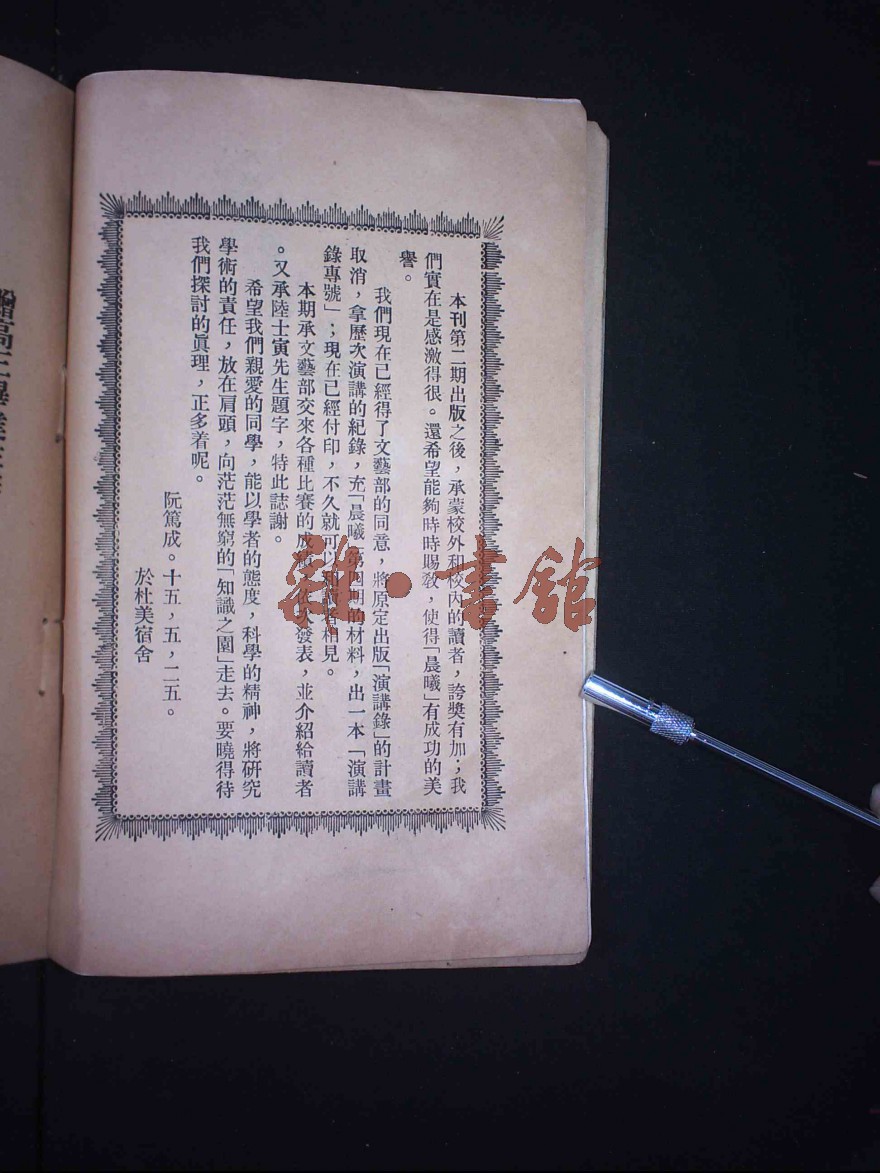 本刊第二期出版之後，承蒙校外和校內的讀者，誇獎有加；我
們實在是感激得很。還希望能夠時時賜教，使得「晨曦」有成功的美
譽。
我們現在已經得了文藝部的同意，將原定出版「演講錄」的計畫
取消，拿歷次演講的紀錄，充「晨曦」第四期的材料，出一本「演講
錄專號」；現在已經付印，不久就可以和讀者相見。
本期承文藝部交來各種比賽的成績，依次發表，並介紹給讀者
。又承陸士寅先生題字，特此誌謝。
希望我們親愛的同學，能以學者的態度，科學的精神，將研究
學術的責任，放在肩頭，向茫茫無窮的「知識之園」走去。要曉得待
我們探討的眞理，正多着呢。
阮篤成。十五，五，二五。
於杜美宿舍
雜·書館